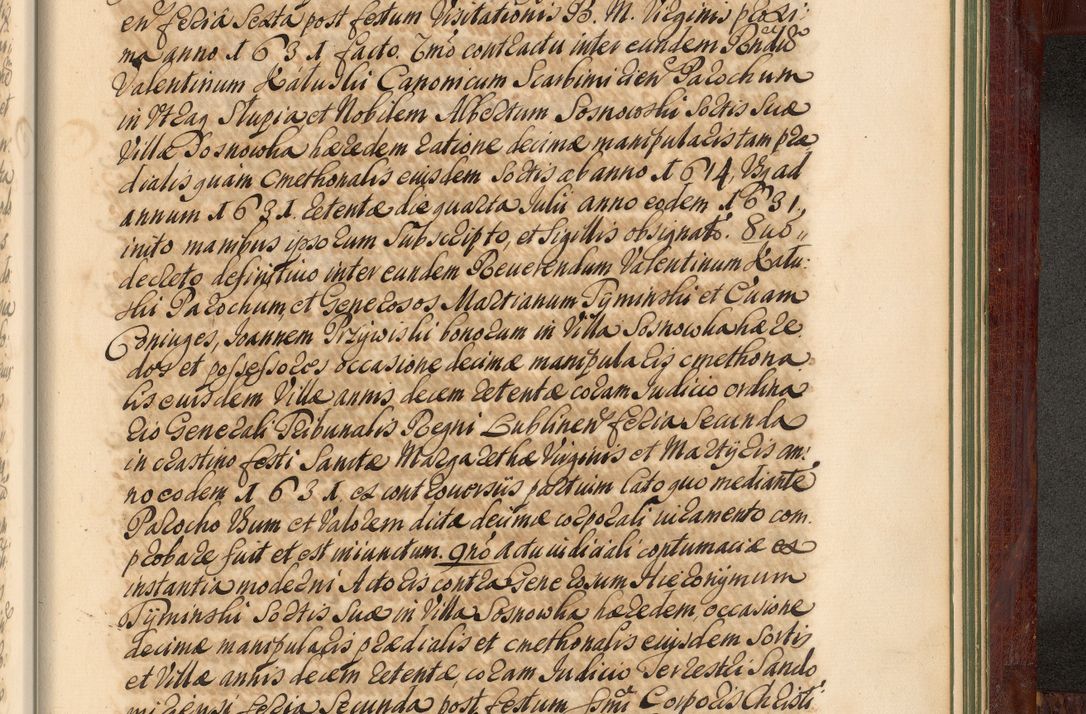 en. feria sexta post festum Visitationis B. M. Virginis proxi
ma anno 1631 facto. 7mo contractu inter eundem Rendum
Valentinum Katuski Canonicum Scarbimirien. Parochum
in Utraq Slupia et Nobilem Albertum Sosnowski Sortis Suæ
Villæ Sosnowka hæredem ratione decimæ manipularis tam præ
dialis quam cmethonalis eiusdem Sortis ab anno 1614. Usq ad
annum 1631. retentæ die quarta Julii anno eodem 1631,
inito manibus ipsorum subscripto, et sigillis obsignato. 8uo
decreto definitiuo inter eundem Reuerendum Valentinum Katu
ski Parochum et Generosos Martianum Tyminski et Cuam
Coniuges, Joannem Przywiski bonorum in Villa Sosnowka hære
des et possessores occasione decimæ manipularis cmethona
lis eiusdem Villæ annis decem retentæ coram Judicio ordina
rio Generali Tribunalis Regni Lublinen. feria Secunda
in crastino festi Sanctæ Margarethæ Virginis et Martyris an
no eodem 1631. ex controuersiis partium lato quo mediante
Parocho Usum et Valorem dictæ decimæ corporali iuramento com
probare fuit et est iniunctum. 9no Actu iudiciali contumaciæ ex
instantia moderni Actoris contra Generosum Hieronymum
Tyminski Sortis Suæ in Villa Sosnowka hæredem, occasione
decimæ manipularis prædialis et cmethonalis eiusdem Sortis
et Villæ annis decem retentæ coram Judicio Terrestri Sando
miriensi feria Secunda post festum Ssmi Corporis Christi